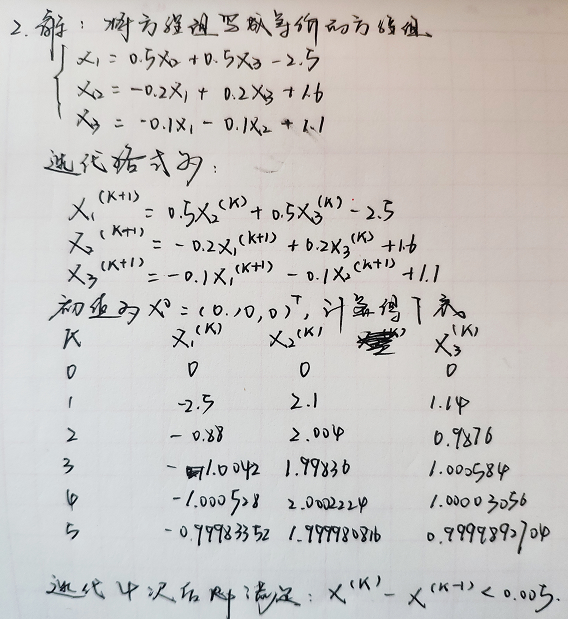 2. 解：将方程组写成等价的方程组
x₁ = 0.5x₂ + 0.5x₃ - 2.5
x₂ = -0.2x₁ + 0.2x₃ + 1.6
x₃ = -0.1x₁ - 0.1x₂ + 1.1
迭代格式为：
x₁^(k+1) = 0.5x₂^(k) + 0.5x₃^(k) - 2.5
x₂^(k+1) = -0.2x₁^(k+1) + 0.2x₃^(k) + 1.6
x₃^(k+1) = -0.1x₁^(k+1) - 0.1x₂^(k+1) + 1.1
初值为 x⁰ = (0, 0, 0)ᵀ, 计算得下表
K x₁^(k) x₂^(k) x₃^(k)
0 0 0 0
1 -2.5 2.1 1.14
2 -0.88 2.004 0.9876
3 -1.0042 1.99836 1.000584
4 -1.000528 2.0002224 1.00003056
5 -0.99983352 1.999980816 0.9999892704
迭代4次后即满足：x^(k) - x^(k-1) < 0.005.